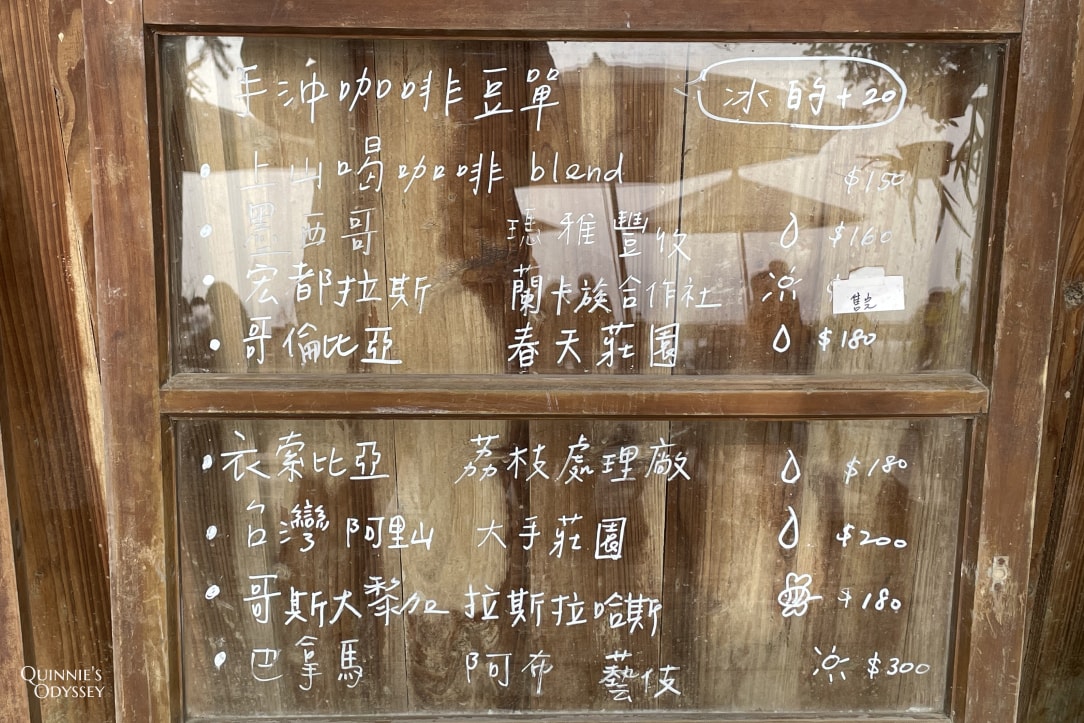 手沖咖啡豆單 冰的+20
• 上山喝咖啡 blend $150
• 墨西哥 瑪雅豐收 $160
• 宏都拉斯 蘭卡族合作社 售完
• 哥倫比亞 春天莊園 $180
• 衣索比亞 荔枝處理廠 $180
• 台灣 阿里山 大手莊園 $200
• 哥斯大黎加 拉斯拉哈斯 $180
• 巴拿馬 阿布 藝伎 $300
QUINNIE'S
ODYSSEY